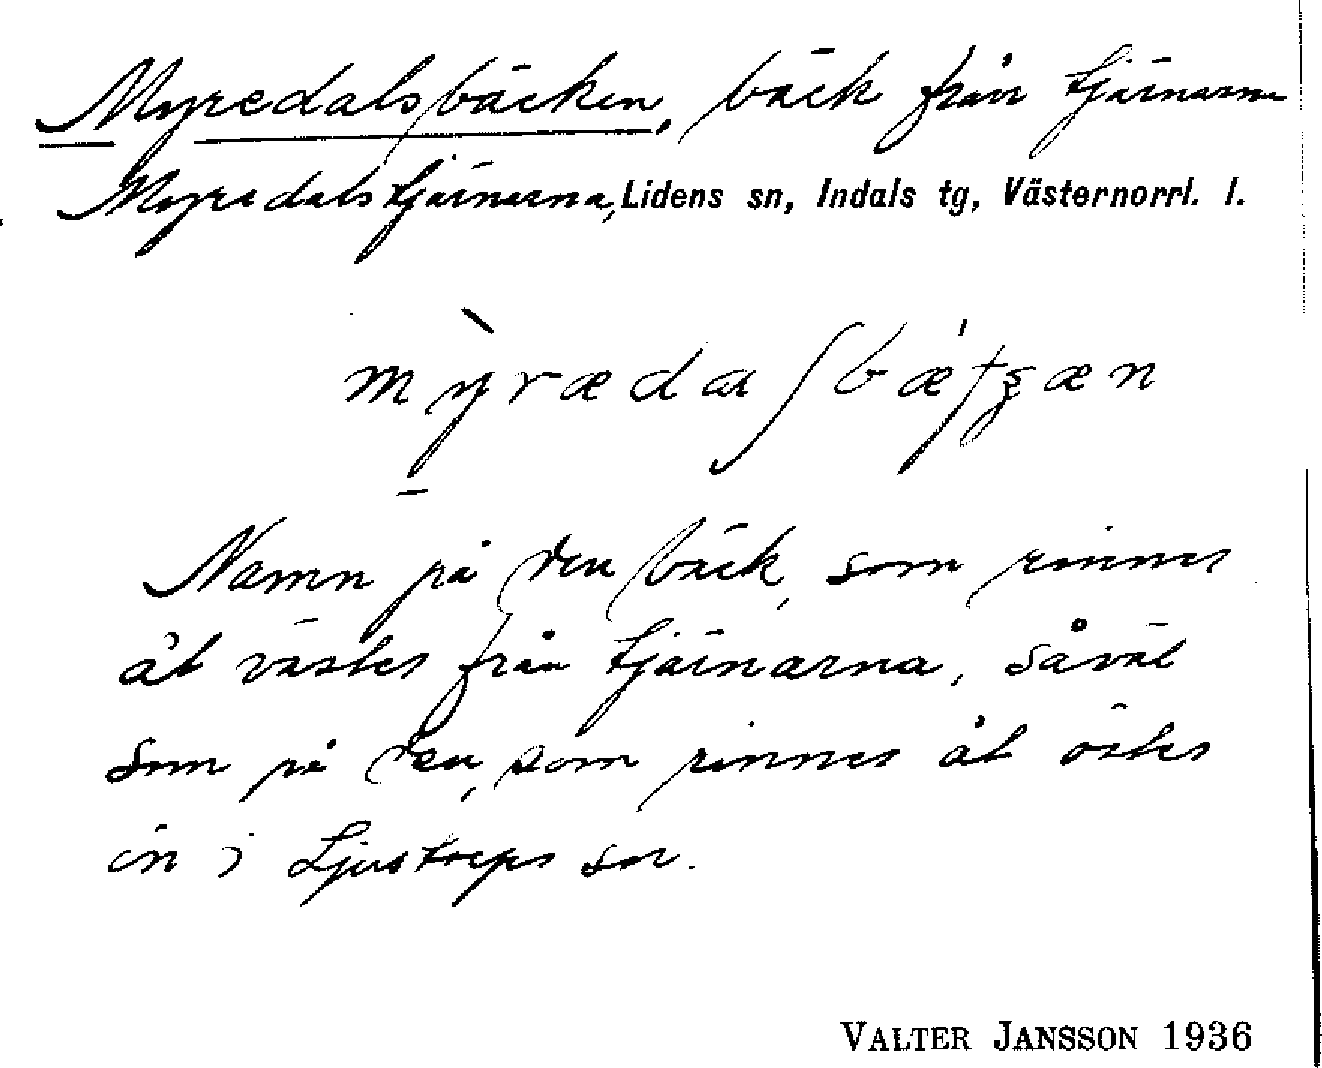 Myredalsbäcken, bäck från tjärnarna
Myredalstjärnarna, Lidens sn, Indals tg, Västernorrl. l.
Namn på den bäck, som rinner
åt väster från tjärnarna, såväl
som på den, som rinner åt öster
in i Ljustorps sn.
VALTER JANSSON 1936